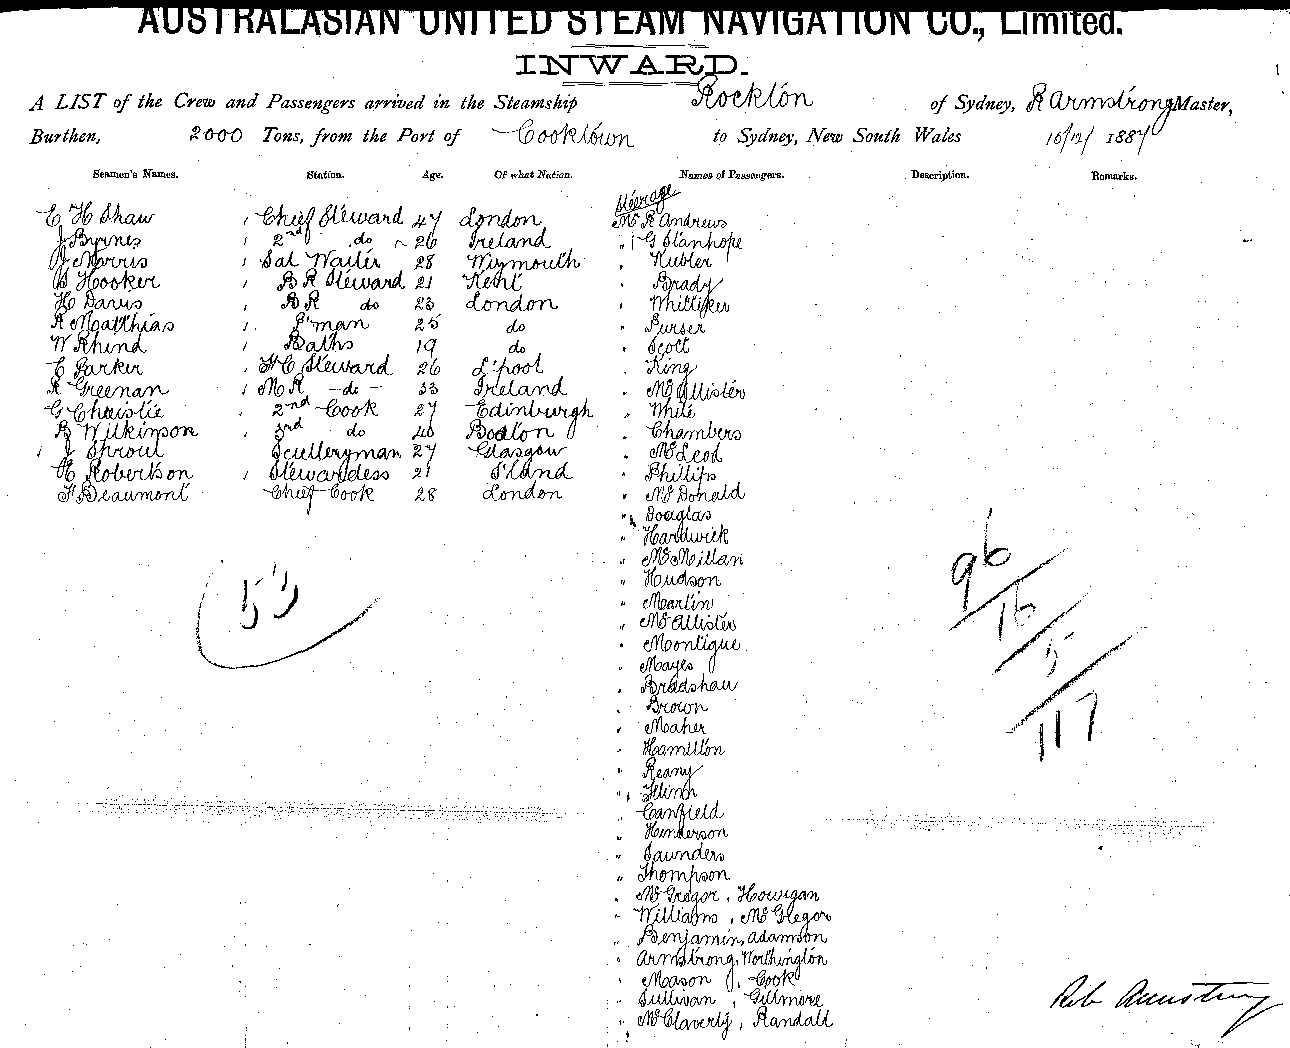 AUSTRALASIAN UNITED STEAM NAVIGATION CO., Limited.
INWARD.
A LIST of the Crew and Passengers arrived in the Steamship Rockton of Sydney, R Armstrong Master,
Burthen, 2000 Tons, from the Port of Cooktown to Sydney, New South Wales 10/12/ 1887
Seamen's Names. Station. Age. Of what Nation. Names of Passengers. Description. Remarks.
C H Shaw Chief Steward 47 London
J Byrnes 2nd do 26 Ireland
J Morris Sal Waiter 28 Weymouth
B Hooker B R Steward 21 Kent
H Davis B R do 23 London
R Matthias P'man 25 do
W Rhind Baths 19 do
C Parker F C Steward 26 L'pool
R Greenan M R do 33 Ireland
G Christie 2nd Cook 27 Edinburgh
B Wilkinson 3rd do 40 Boston
J Sproul Sculleryman 27 Glasgow
E Robertson Stewardess 21 S'land
F Beaumont Chief Cook 28 London
53
Steerage
Mr R Andrews
" G Stanhope
" Kubler
" Brady
" Whittiker
" Purser
" Scott
" King
" McAllister
" White
" Chambers
" McLeod
" Phillips
" McDonald
" Douglas
" Hardwick
" McMillan
" Hudson
" Martin
" McAllister
" Montigue
" Mayes
" Bradshaw
" Brown
" Maher
" Hamilton
" Reany
" Flinn
" Canfield
" Henderson
" Saunders
" Thompson
" McGregor, Howigan
" Williams, McGregor
" Benjamin, Adamson
" Armstrong, Worthington
" Mason J, Cook
" Sullivan, Gillmore
" McClaverty, Randall
96
16
5
117
Rob Armstrong
1